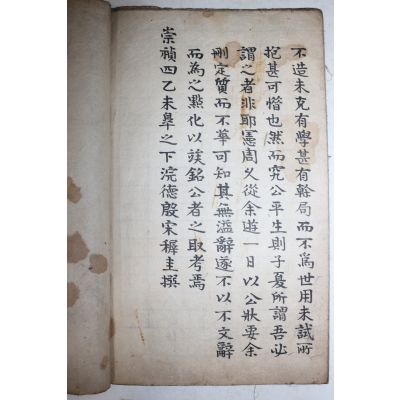 不造未克有學甚有幹局而不爲世用未試所
抱甚可惜也然而究公平生則子夏所謂吾必
謂之者非耶憲周乂從余遊一日以公狀要余
刪定質而不華可知其無溢辭遂不以不文辭
而爲之點化以竢銘公者之取考焉
崇禎四乙未皐之下浣德殷宋穉圭撰